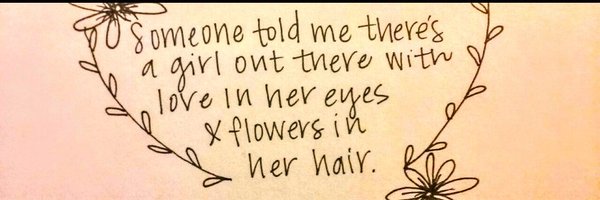 Someone told me there's
a girl out there with
love in her eyes
& flowers in
her hair.